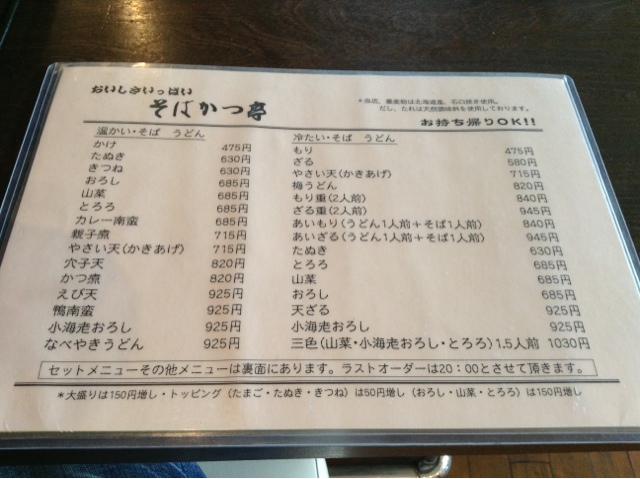 おいしさいっぱい
そばかつ亭
*当店、蕎麦粉は北海道産、石臼挽き使用。
だし、たれは天然調味料を使用しております。
お持ち帰りOK!!
温かい・そば うどん
かけ 475円
たぬき 630円
きつね 630円
おろし 685円
山菜 685円
とろろ 685円
カレー南蛮 685円
親子煮 715円
やさい天(かきあげ) 715円
穴子天 820円
かつ煮 820円
えび天 925円
鴨南蛮 925円
小海老おろし 925円
なべやきうどん 925円
冷たい・そば うどん
もり 475円
ざる 580円
やさい天(かきあげ) 715円
梅うどん 820円
もり重(2人前) 840円
ざる重(2人前) 945円
あいもり(うどん1人前+そば1人前) 840円
あいざる(うどん1人前+そば1人前) 945円
たぬき 630円
とろろ 685円
山菜 685円
おろし 685円
天ざる 925円
小海老おろし 925円
三色(山菜・小海老おろし・とろろ)1.5人前 1030円
セットメニューその他メニューは裏面にあります。ラストオーダーは20:00とさせて頂きます。
*大盛りは150円増し・トッピング(たまご・たぬき・きつね)は50円増し(おろし・山菜・とろろ)は150円増し